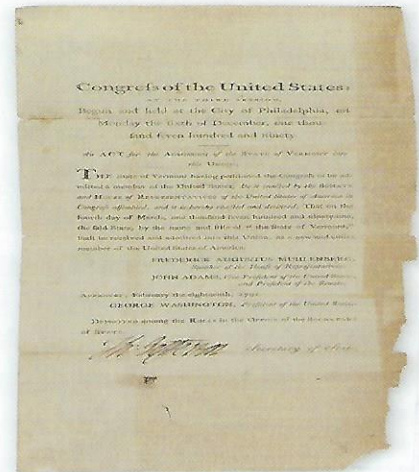 Congrefs of the United States:
AT THE THIRD SESSION,
Begun and held at the City of Philadelphia, on
Monday the fixth of December, one thou-
fand feven hundred and ninety.
An ACT for the Admiffion of the STATE of VERMONT into
this Union.
THE State of Vermont having petitioned the Congrefs to be ad-
mitted a member of the United States, Be it enacted by the SENATE
and HOUSE of REPRESENTATIVES of the United States of America in
Congrefs affembled, and it is hereby enacted and declared, That on the
fourth day of March, one thoufand feven hundred and ninety-one,
the faid State, by the name and ftile of "the State of Vermont,"
fhall be received and admitted into this Union, as a new and entire
member of the United States of America.
FREDERICK AUGUSTUS MUHLENBERG,
Speaker of the Houfe of Reprefentatives.
JOHN ADAMS, Vice Prefident of the United States,
and Prefident of the Senate.
APPROVED, February the eighteenth, 1791.
GEORGE WASHINGTON, Prefident of the United States.
DEPOSITED among the ROLLS in the Office of the Secretary
of State.
Th. Jefferson Secretary of State.